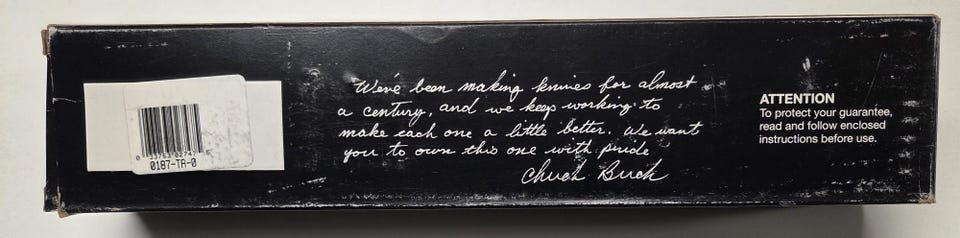 We've been making knives for almost
a century, and we keep working to
make each one a little better. We want
you to own this one with pride
Chuck Buck
ATTENTION
To protect your guarantee,
read and follow enclosed
instructions before use.
0187-TA-0